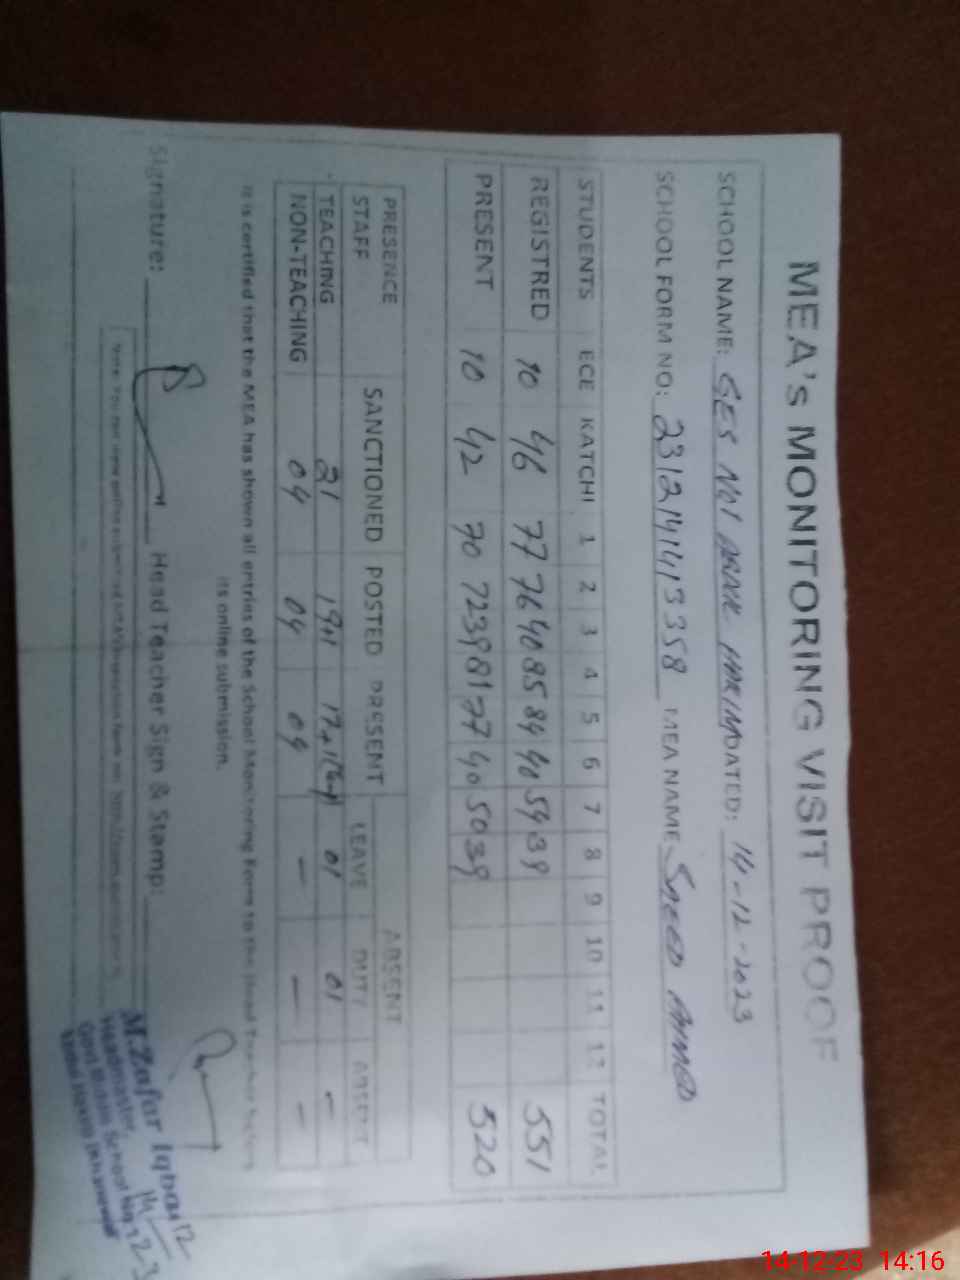 MEA's MONITORING VISIT PROOF
SCHOOL NAME: GES NO1 DATED: 14-12-2023
SCHOOL FORM NO: 2312141413358 MEA NAME SAEED AHMED
STUDENTS ECE KATCHI 1 2 3 4 5 6 7 8 9 10 11 12 TOTAL
REGISTRED 10 46 77 76 40 85 84 40 54 39 551
PRESENT 10 42 70 72 39 81 77 40 50 39 520
PRESENCE ABSENT
STAFF SANCTIONED POSTED PRESENT LEAVE DUTY ABSENT
TEACHING 21 19+1 17+1 01 01 -
NON-TEACHING 04 04 04 - - -
It is certified that the MEA has shown all entries of the School Monitoring Form to the Head Teacher before
its online submission.
Signature: Head Teacher Sign & Stamp:
M. Zafar Iqbal
Headmaster
School
14-12-23 14:16